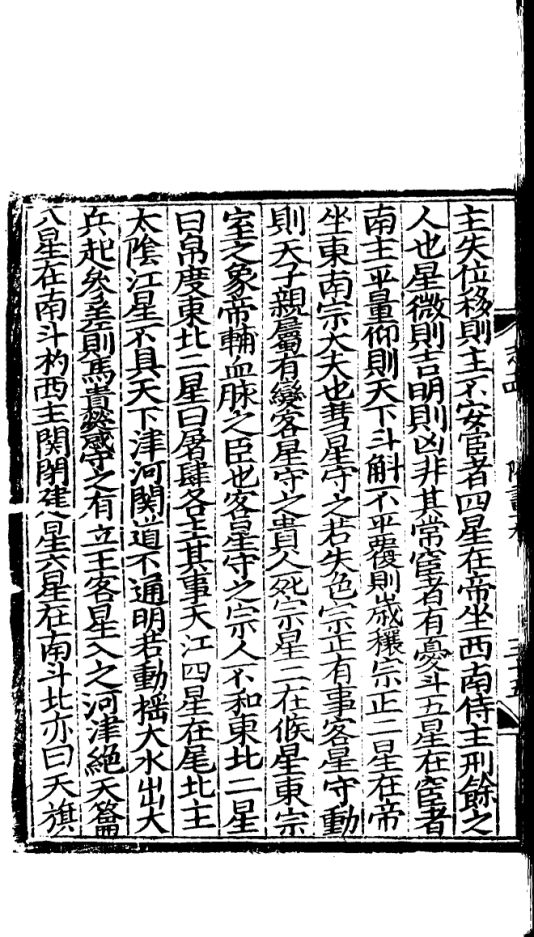 志四
主失位移則主不安宦者四星在帝坐西南侍主刑餘之
人也星微則吉明則凶非其常宦者有憂斗五星在宦者
南主平量仰則天下斗斛不平覆則歲穰宗正二星在帝
坐東南宗大夫也彗星守之若失色宗正有事客星守動
則天子親屬有變客星守之貴人死宗星二在候星東宗
室之象帝輔血脉之臣也客星守之宗人不和東北二星
曰帛度東北二星曰屠肆各主其事天江四星在尾北主
太陰江星不具天下津河関道不通明若動揺大水出大
兵起參差則馬貴熒惑守之有立王客星入之河津絕天籥
八星在南斗杓西主関閉建星六星在南斗北亦曰天旗